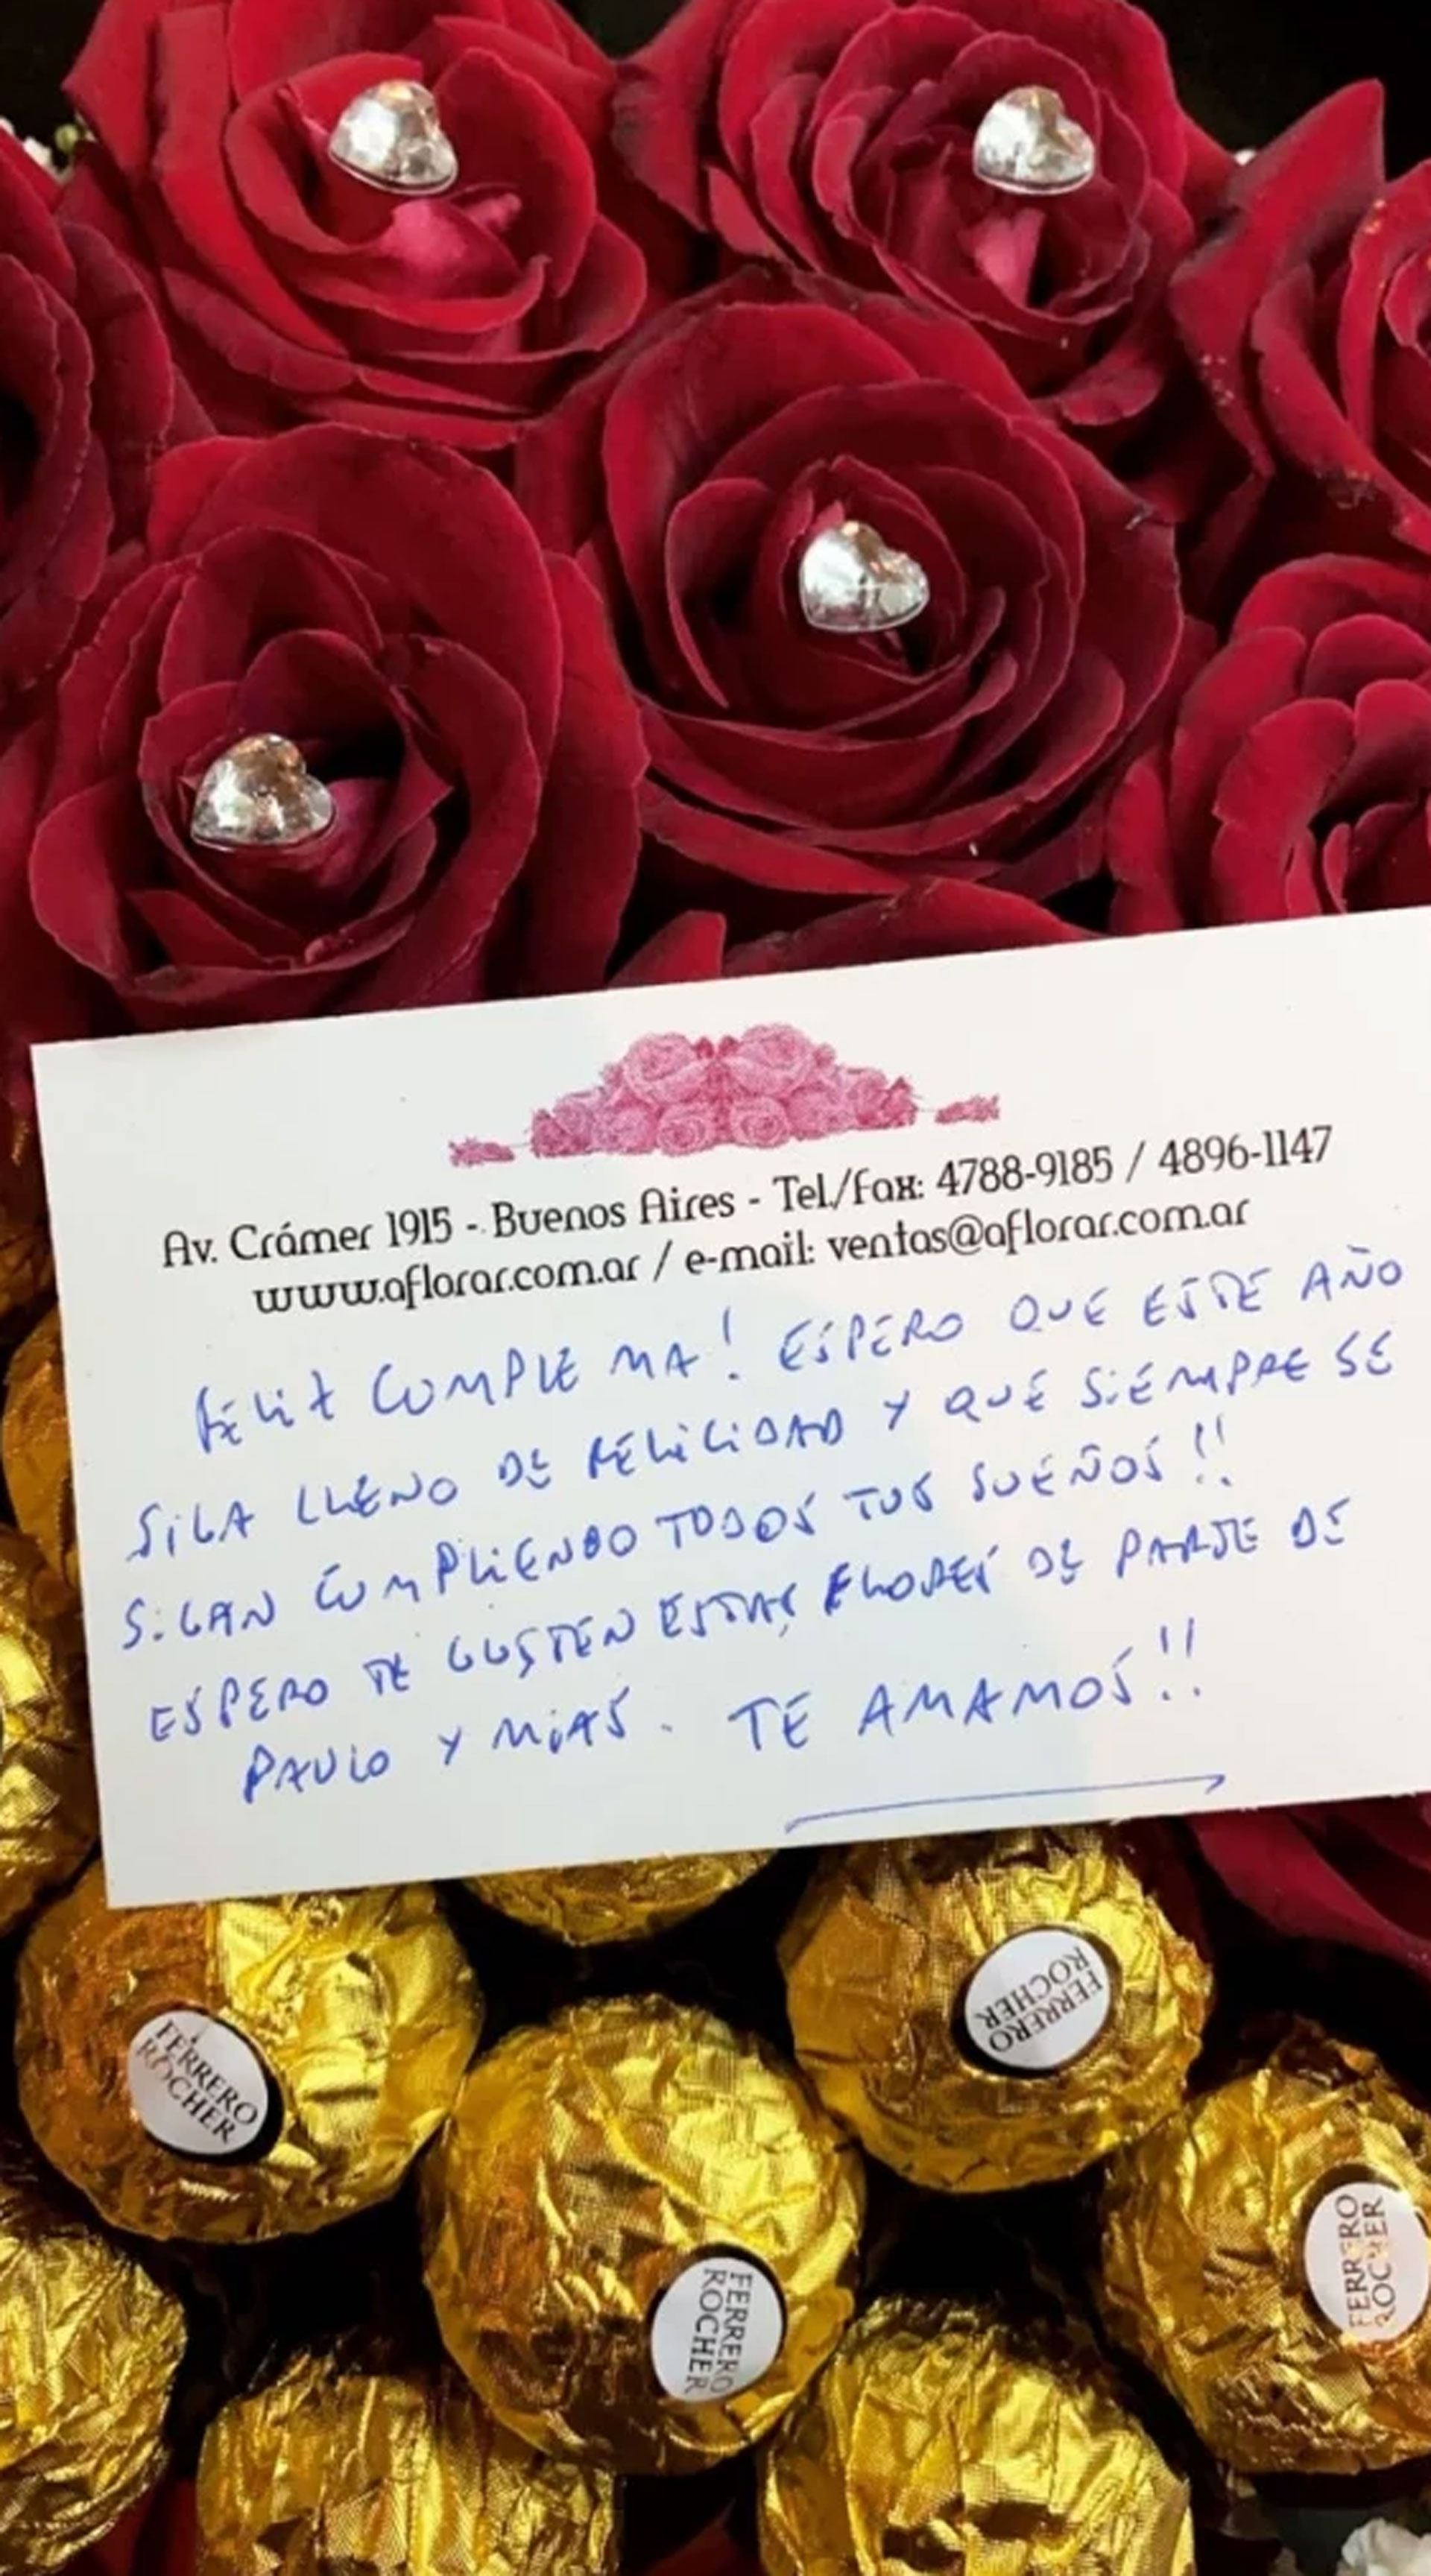 Av. Crámer 1915 - Buenos Aires - Tel./Fax: 4788-9185 / 4896-1147
www.aflorar.com.ar / e-mail: ventas@aflorar.com.ar
FELIZ CUMPLE MA! ESPERO QUE ESTE AÑO
SIGA LLENO DE FELICIDAD Y QUE SIEMPRE SE
SIGAN CUMPLIENDO TODOS TUS SUEÑOS!!
ESPERO TE GUSTEN ESTAS FLORES DE PARTE DE
PAULO Y MIAS. TE AMAMOS!!
FERRERO
ROCHER
FERRERO
ROCHER
FERRERO
ROCHER
FERRERO
ROCHER